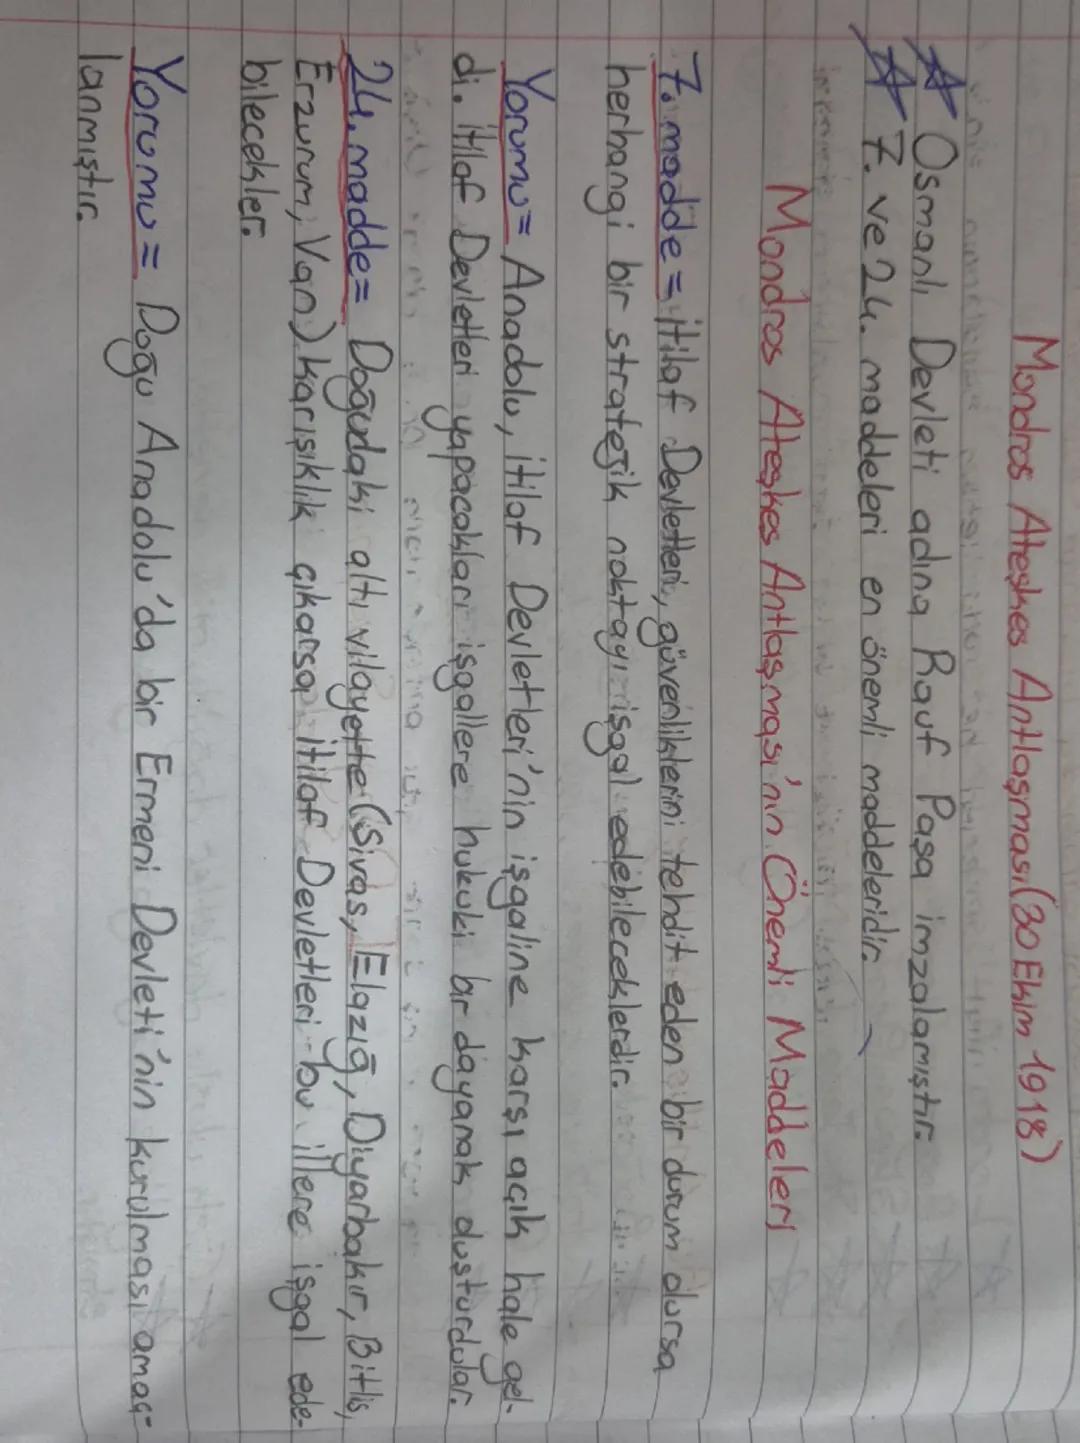 Mondros Ateşkes Antlaşması (30 Ekim 1918)
Osmanlı Devleti adına Rauf Paşa imzalamıştır.
7. ve 24. maddeleri en önemli maddeleridir.
Mondros Ateşkes Antlaşması'nın Önemli Maddeleri
7. madde = İtilaf Devletleri, güvenliklerini tehdit eden bir durum olursa
herhangi bir stratejik noktayı işgal edebileceklerdir.
Yorumu = Anadolu, itilaf Devletleri'nin işgaline karşı açık hale gel-
di. İtilaf Devletleri yapacakları işgallere hukuki bir dayanak duşturdular.
24. madde = Doğudaki altı vilayette (Sivas, Elazığ, Diyarbakır, Bitlis,
Erzurum, Van) karışıklık çıkarsa İtilaf Devletleri bu illere işgal ede-
bilecekler.
Yorumu = Doğu Anadolu'da bir Ermeni Devleti'nin kurulması amaç-
lanmıştır.